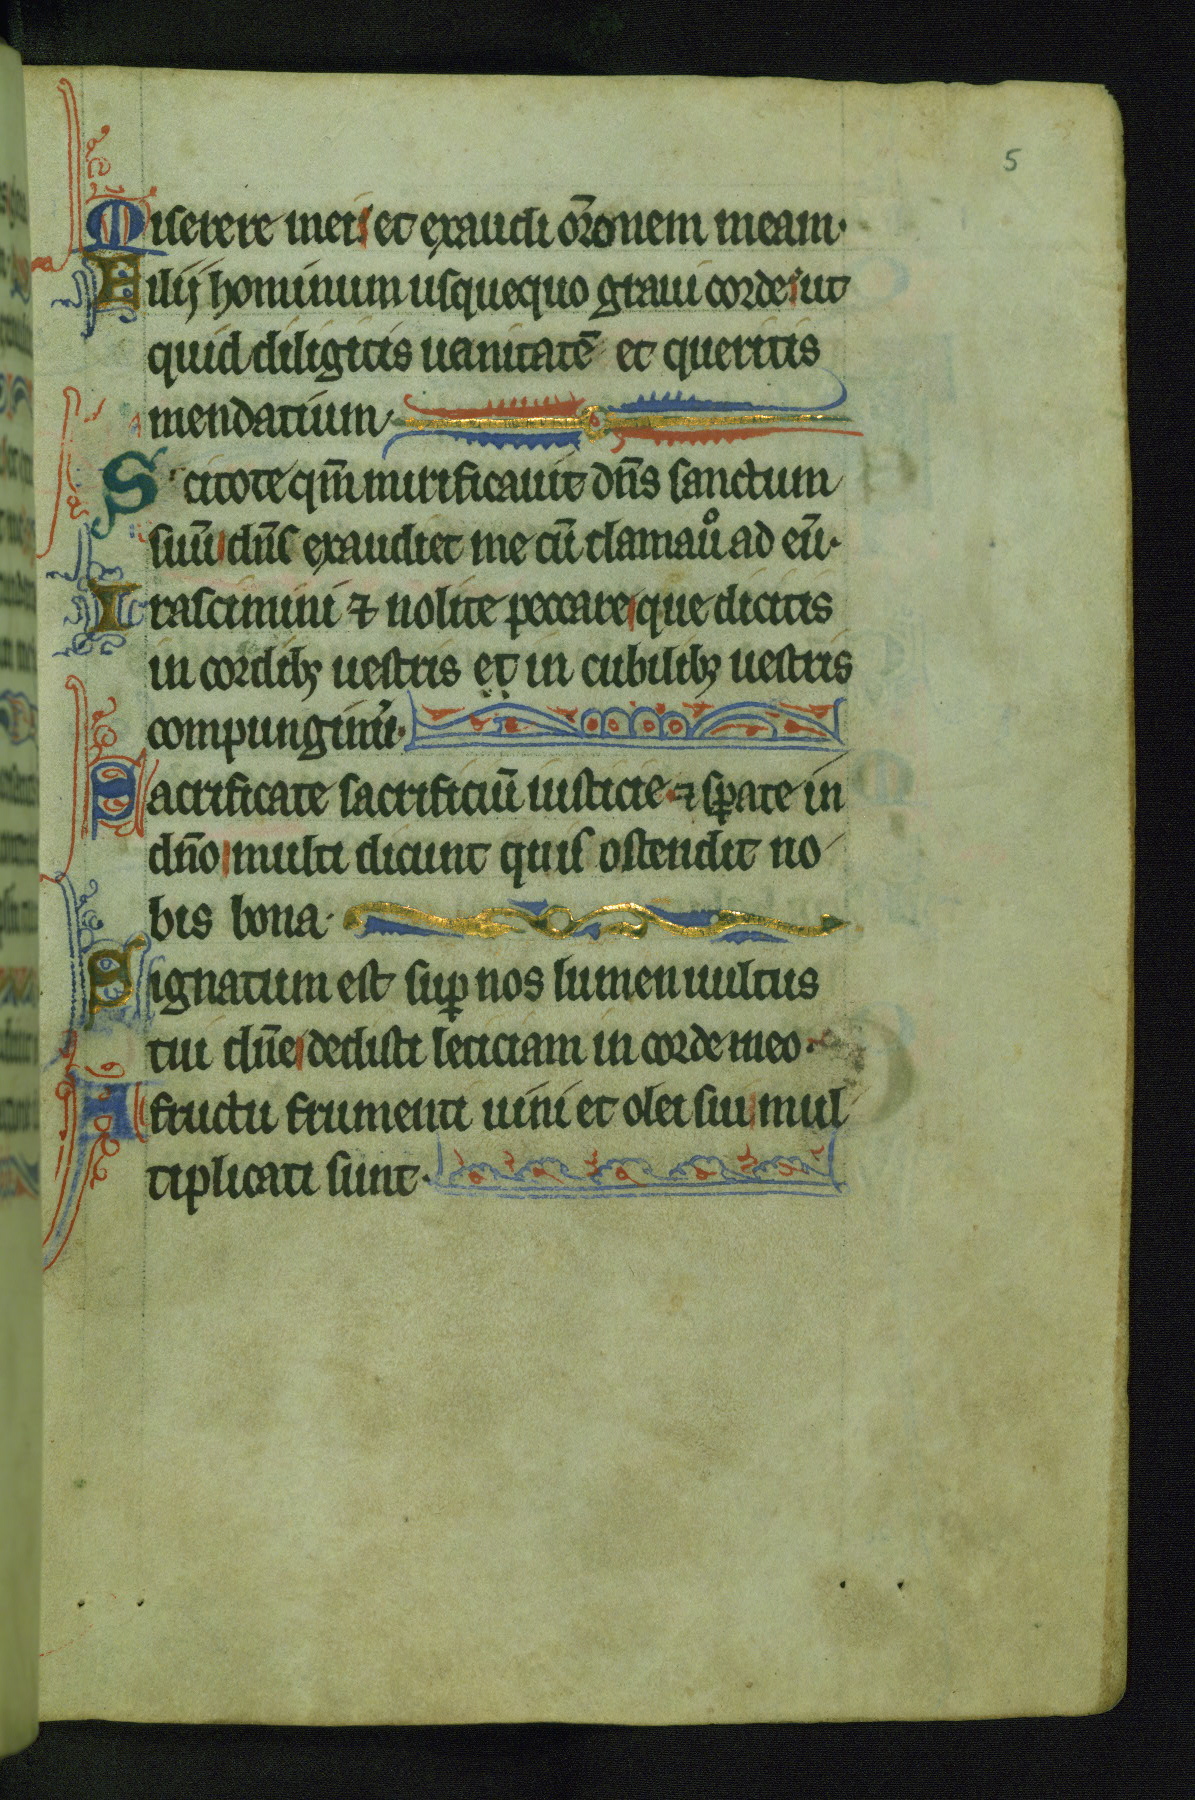 5
Miserere mei et exaudi or̄onem meam·
Filij hominum usquequo graui corde ut
quid diligitis uanitatē et queritis
mendatium·
Scitote qm̄ mirificauit dn̄s sanctum
suū dn̄s exaudiet me cū clamau᷒o ad eū·
Irascimini ⁊ nolite peccare que dicitis
in cordibꝫ uestris et in cubilibꝫ uestris
compungimī·
Sacrificate sacrificiū iusticie ⁊ sꝑate in
dn̄o multi dicunt quis ostendit no
bis bona·
Signatum est suꝑ nos lumen uultus
tui dn̄e dedisti leticiam in corde meo·
A fructu frumenti uini et olei sui mul
tiplicati sunt·